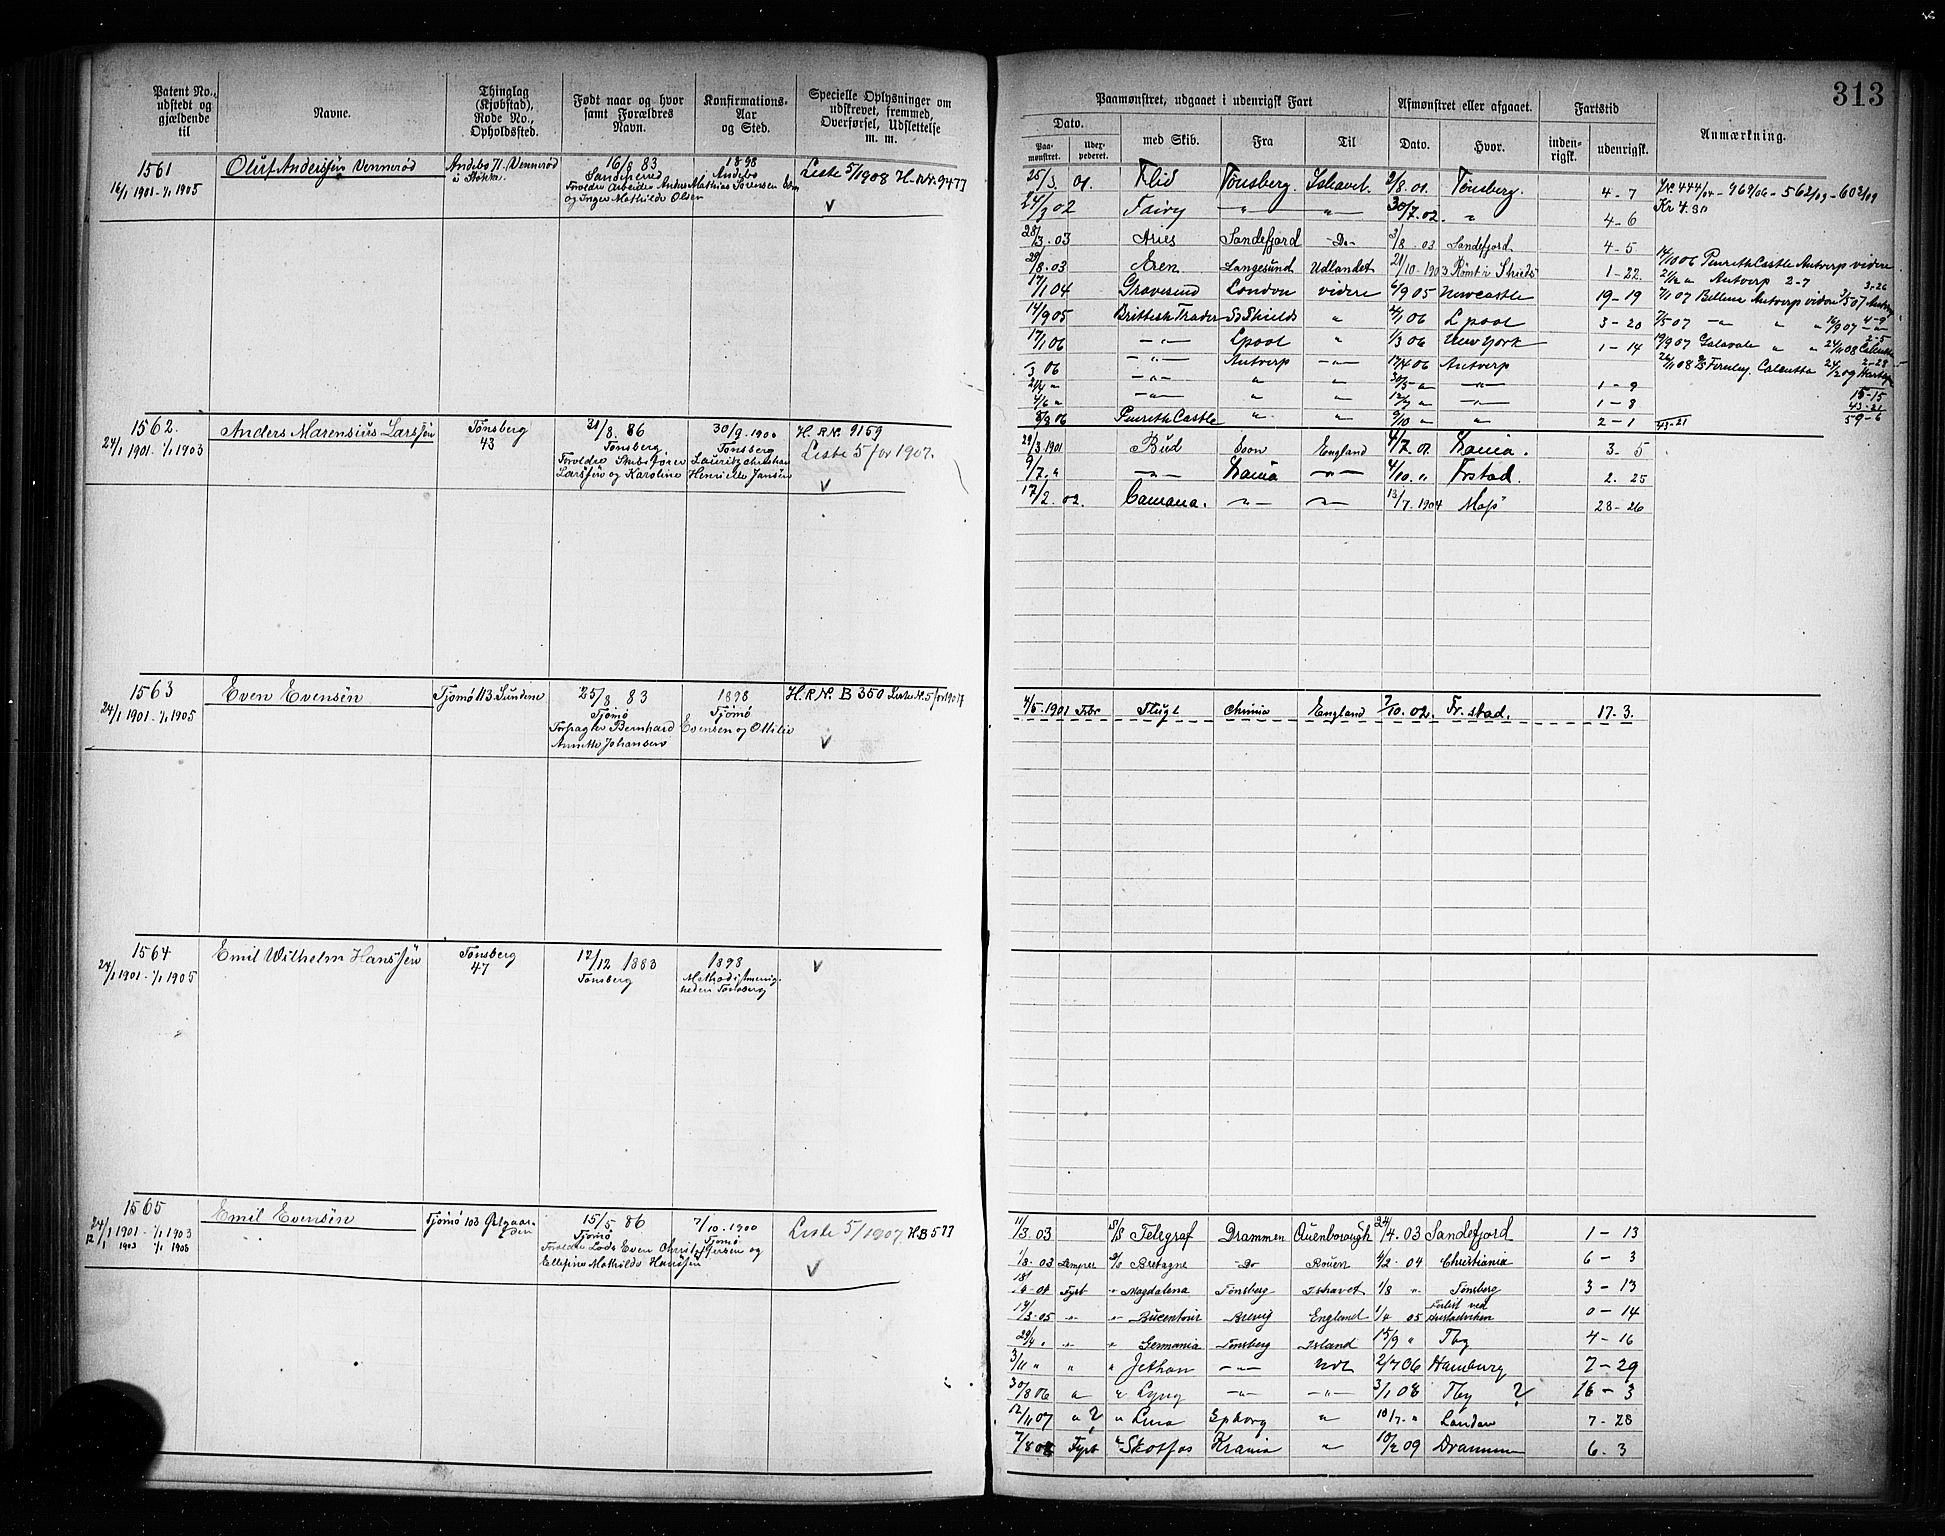 313
Patent No., udstedt og gjældende til
Navne.
Thinglag (Kjøbstad), Rode No., Opholdssted.
Født naar og hvor samt Forældres Navn.
Konfirmations-Aar og Sted.
Specielle Oplysninger om udskrevet, fremmed, Overførsel, Udslettelse m. m.
Paamønstret, udgaaet i udenrigsk Fart
Afmønstret eller afgaaet.
Fartstid
Anmærkning.
Dato.
med Skib.
Fra
Til
Dato.
Hvor.
inden-rigsk.
udenrigsk.
Paa-mønstret.
1561
16/1 1901 - 1/1 1905
Oluf Anderssen Vennerød
Andebo 71. Vennerød
i Stokke.
16/8 83
Sandeherred
Forældre Arbeider Anders Mathias Sørensen
og Inger Mathilde Olsen
1898
Andebo
Liste 5/1908 H. R. Nr. 9477
V
25/3 01. Flid Tønsberg. Ishavet. 2/8 01. Tønsberg. 4-7
24/3 02 Fairy — " — " — 30/7. 02. " 4-6
28/3. 03 Aries Sandefjord - Do - 3/8. 03 Sandefjord 4-5
29/8. 03 Aren Langesund Udlandet 21/10 - 1903 Rømt i Shields 1-22.
17/1 04 Gravesend London videre 6/9 05 Newcastle 19-19
14/9 05 Brittish Trader So Shields " 4/1 06 Lpool 3-20
17/1 06 — " — Lpool " 1/3 06 New York 1-14
3 06 — " — Antverp — " — 17/4 06 Antverp
2/4 " — " — " " 30/5 " — " — 1-9
4/6 " — " — " " 12/7 " — " — 1-8
8/9 06 Penreth Castle " " 9/10 " " 2-1
Jr. 444/04 - 969/06 - 562/09 - 603/09
Kr 4.30
14/10 06 Penreth Castle Antverp videre
2/12 " Antverp 2-7 3-26
7/1 07 Bellena Antverp videre 3/5 07 Antverp
7/5 07 — " — " " 16/9 07 4-9
19/9 07 Galavale " " 24/1 08 Calcutta
26/1 08 Fernley Calcutta 24/2 09
15-15
43-21
59-6
43-21
1562.
24/1 1901 - 1/1 1903
Anders Marensius Larssen
Tønsberg
43
31/8. 86
Tønsberg.
Forældre Skibsfører
Larssen og Karoline
30/9. 1900
Tønsberg
Lauritz Christian
Henriette Jansen
H. R. Nr. 9159
Liste 5 for 1907.
V
29/3 1901 Bud Soon England 4/7. 01. Krania. 3. 5
9/7. " — " — Krania — " — 4/10. " Frstad. 2. 25
17/2. 02. Camana. — " — — " — 13/7. 1904 Moss 28-26
1563
24/1 1901. - 1/1 1905
Even Evensen
Tjømø 113. Sundene
25/8 83
Tjømø
Forpagter Bernhard
Annette Johansen
1898
Tjømø
Evensen og Ottilie
H. R. Nr. B 350 Liste Nr. 5 for 1907
V
4/5. 1901 Flugt Chrinia England 7/10. 02. Fr. stad. 17. 3.
1564
24/1 1901. - 1/1 1905
Emil Wilhelm Hanssen
Tønsberg
47
12/12 1883
Tønsberg
1898
Methodistmenig-
heden Tønsberg
V
1565
24/1 1901 - 1/1 1903
12/1 1903 1/1 1908
Emil Evensen
Tjømø 103 Østgaar-
den
15/5 86
Tjømø
Forældre Lods Even Christ
Ellefine Mathilde Hanssen
7/10. 1900
Tjømø
offersen og
Liste 5/1907 H B 577
V
11/3 03 S/S Telegraf Drammen Quenborough 24/4. 03 Sandefjord 1-13
1/8. 03 Lemper S/S Bretagne Do Rouen 4/2. 04 Christiania 6-3
18/4. 04 Fyrb " Magdalena Tønsberg Ishavet 1/8 " Tønsberg 3-13
14/3. 05 " " Bucentour Brevig England 1/4 05 Forlist ved Hustadviken 0-14
29/4 " " " Germania Tønsberg Island 15/9 " Tbg 4-16
3/11 " " " Jethan — " — Udl 2/7 06 Hamburg 7-29
30/8 06 " " Lyng — " — — " — 3/1 08 Tbg ? 16-3
12/11 07 " ? " Lina Gpborg " 10/7. " London 7-28
7/8 08 Fyrb " Skotfos Krania " 10/2 09 Drammen 6. 3